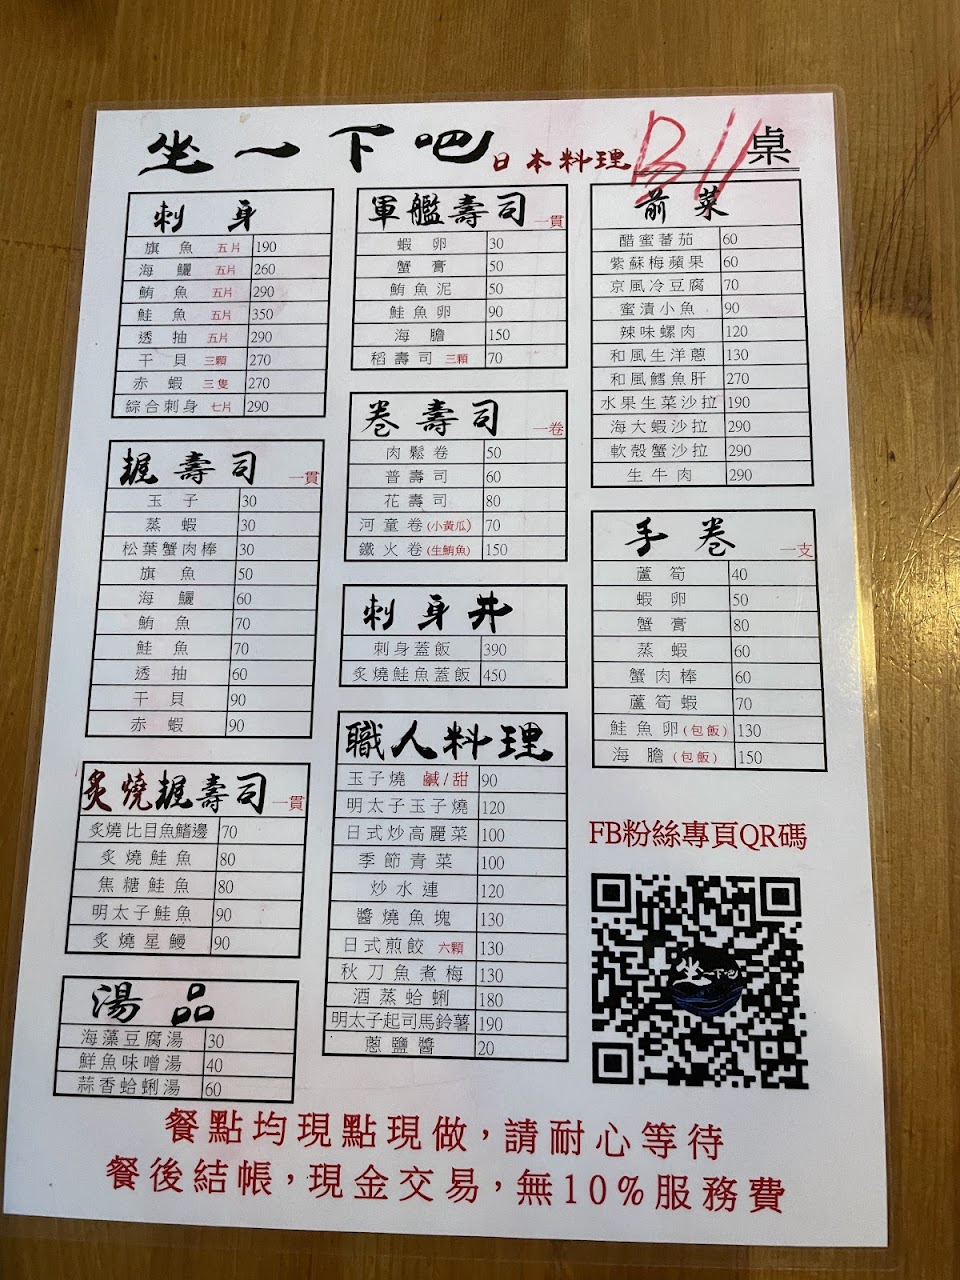 坐一下吧 日本料理 B11 桌
刺身
旗魚 五片 190
海鱺 五片 260
鮪魚 五片 290
鮭魚 五片 350
透抽 五片 290
干貝 三顆 270
赤蝦 三隻 270
綜合刺身 七片 290
握壽司 一貫
玉子 30
蒸蝦 30
松葉蟹肉棒 30
旗魚 50
海鱺 60
鮪魚 70
鮭魚 70
透抽 60
干貝 90
赤蝦 90
炙燒握壽司 一貫
炙燒比目魚鰭邊 70
炙燒鮭魚 80
焦糖鮭魚 80
明太子鮭魚 90
炙燒星鰻 90
湯品
海藻豆腐湯 30
鮮魚味噌湯 40
蒜香蛤蜊湯 60
軍艦壽司 一貫
蝦卵 30
蟹膏 50
鮪魚泥 50
鮭魚卵 90
海膽 150
稻壽司 三顆 70
卷壽司 一卷
肉鬆卷 50
普壽司 60
花壽司 80
河童卷(小黃瓜) 70
鐵火卷(生鮪魚) 150
刺身丼
刺身蓋飯 390
炙燒鮭魚蓋飯 450
職人料理
玉子燒 鹹/甜 90
明太子玉子燒 120
日式炒高麗菜 100
季節青菜 100
炒水連 120
醬燒魚塊 130
日式煎餃 六顆 130
秋刀魚煮梅 130
酒蒸蛤蜊 180
明太子起司馬鈴薯 190
蔥鹽醬 20
前菜
醋蜜蕃茄 60
紫蘇梅蘋果 60
京風冷豆腐 70
蜜漬小魚 90
辣味螺肉 120
和風生洋蔥 130
和風鱈魚肝 270
水果生菜沙拉 190
海大蝦沙拉 290
軟殼蟹沙拉 290
生牛肉 290
手卷 一支
蘆筍 40
蝦卵 50
蟹膏 80
蒸蝦 60
蟹肉棒 60
蘆筍蝦 70
鮭魚卵(包飯) 130
海膽(包飯) 150
FB粉絲專頁QR碼
餐點均現點現做,請耐心等待
餐後結帳,現金交易,無10%服務費